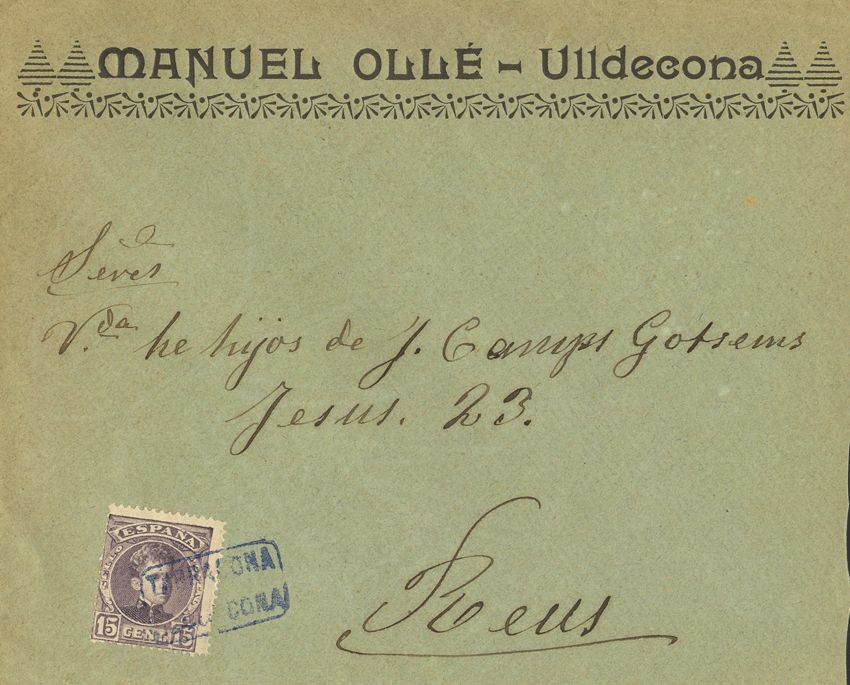 MANUEL OLLÉ - Ulldecona
Sres
V.da he hijos de J. Camps Gotsems
Jesus. 23.
Reus
ESPAÑA
15 CENT 15
TARRAGONA
CONA